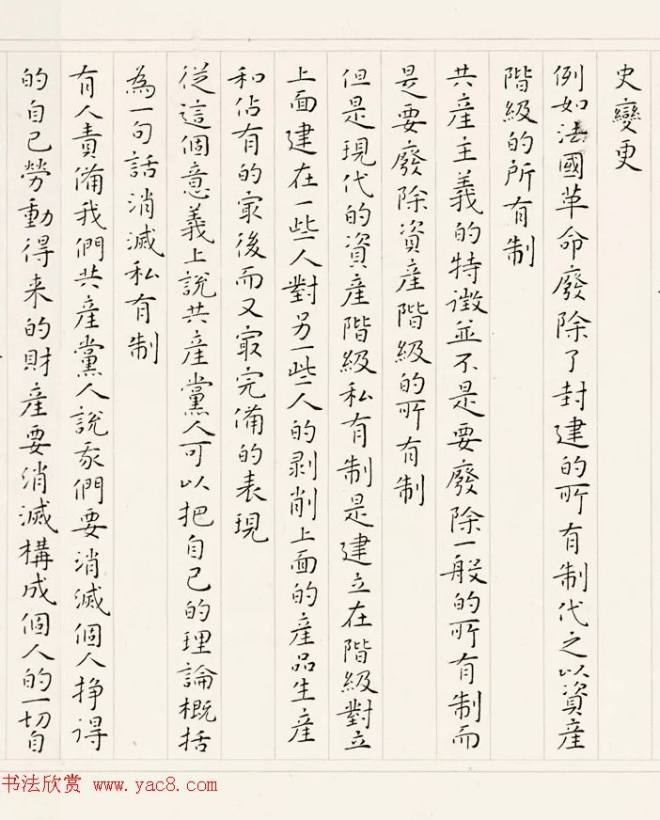 史變更
例如法國革命廢除了封建的所有制代之以資産
階級的所有制
共産主義的特徵並不是要廢除一般的所有制而
是要廢除資産階級的所有制
但是現代的資産階級私有制是建立在階級對立
上面建在一些人對另一些人的剥削上面的産品生産
和佔有的最後而又最完備的表現
從這個意義上說共産黨人可以把自己的理論概括
為一句話消滅私有制
有人責備我們共産黨人說我們要消滅個人挣得
的自己勞動得来的財産要消滅構成個人的一切自
书法欣赏 www.yac8.com